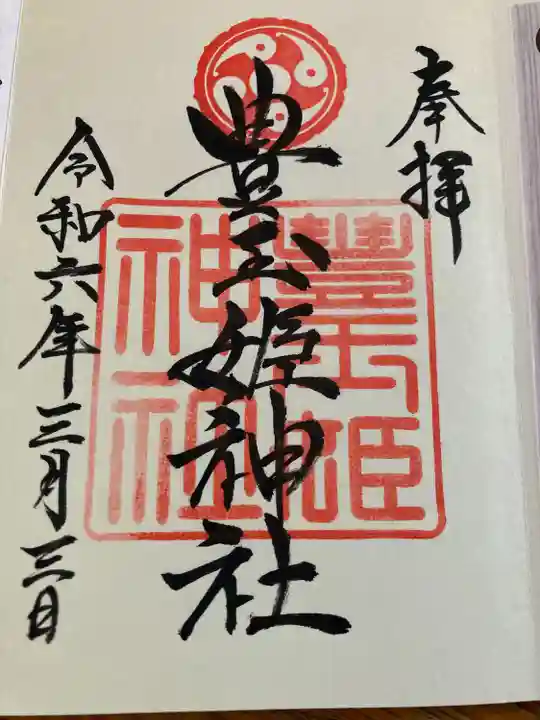 奉拝
豊玉姫神社
豐玉姫
神社
令和六年三月三日